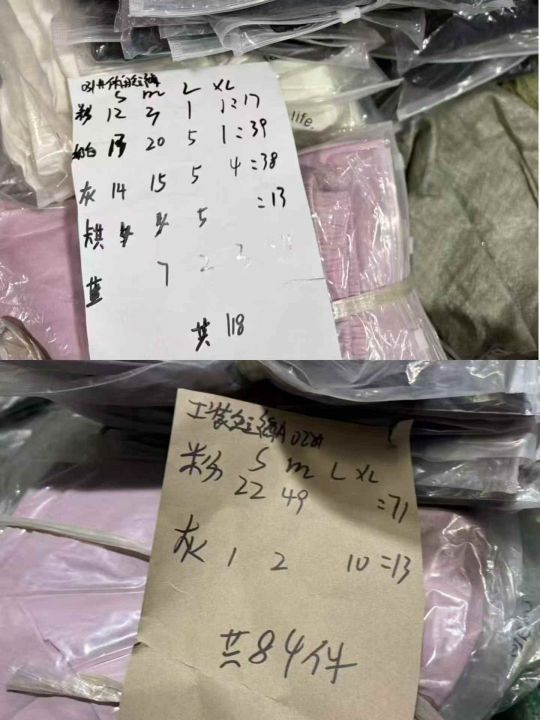 S M L XL
粉 12 3 1 1=17
13 20 5 1=39
灰 14 15 5 4=38
5 =13
蓝 7 2 2
共 118
life.
工装
S m L XL
粉 22 49 =71
灰 1 2 10=13
共84件